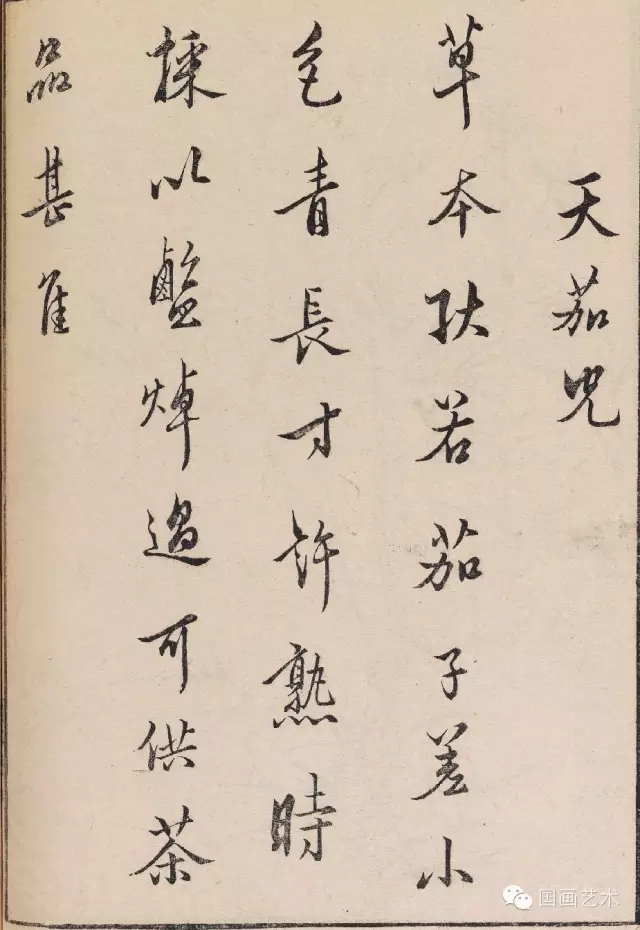 天茄児
草本狀若茄子差小
色青長寸許熟時
採以鹽焯過可供茶
品甚佳
国画艺术